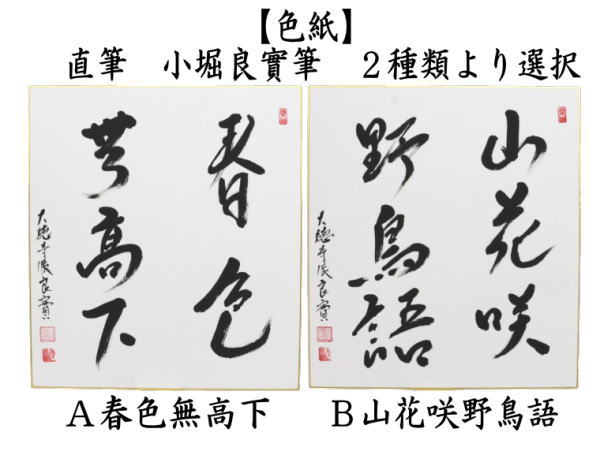 【色紙】
直筆 小堀良實筆 2種類より選択
春色
無高下
大徳寺派良實
山花咲
野鳥語
大徳寺派良實
A春色無高下 B山花咲野鳥語